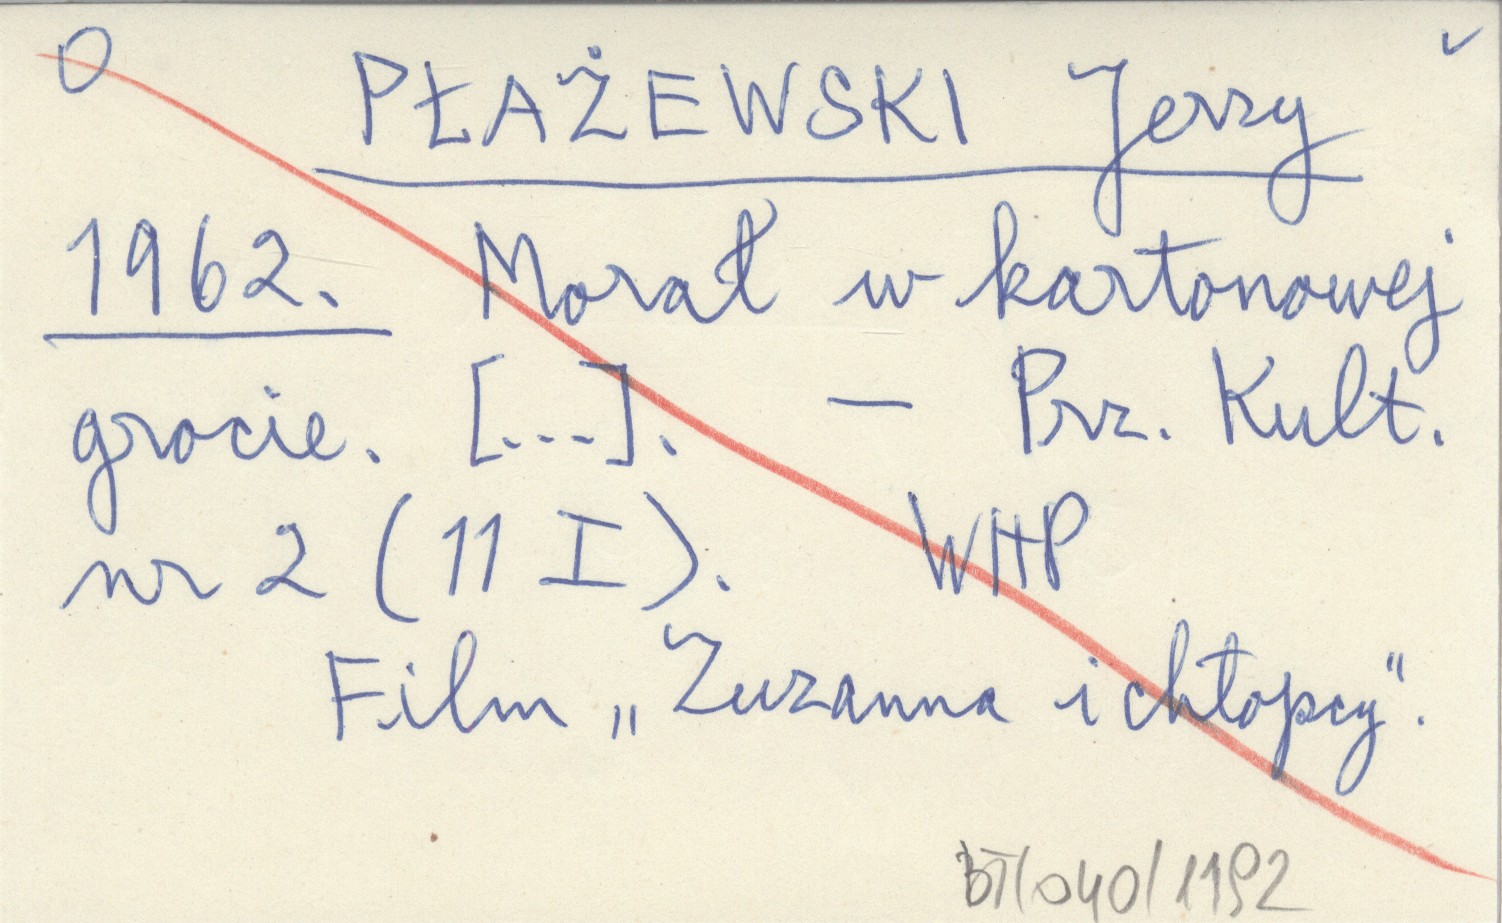 O PŁAŻEWSKI Jerzy
1962. Morał w kartonowej
grocie. [...]. — Prz. Kult.
nr 2 (11 I). WHP
Film „Zuzanna i chłopcy".
BT/040/1192